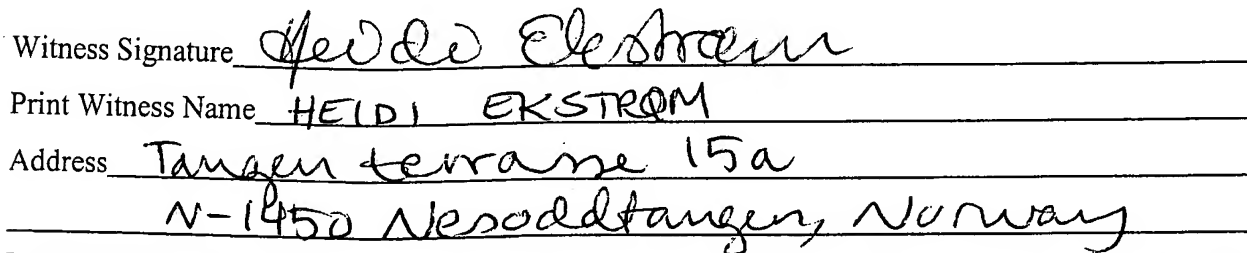 Witness Signature Heidi Ekstrøm
Print Witness Name HEIDI EKSTRØM
Address Tangen terrasse 15a
N-1450 Nesoddtangen, Norway